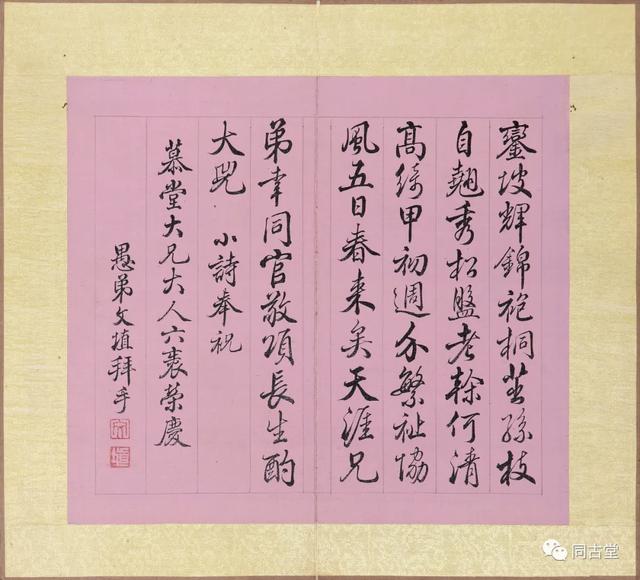 鑾坡輝錦袍桐茁孫枝
自翹秀松盤老榦何清
高綺甲初週介繁祉協
風五日春来矣天涯兄
弟幸同官敬頌長生酌
大兕 小詩奉祝
慕堂大兄大人六袠榮慶
愚弟文植拜手
同古堂